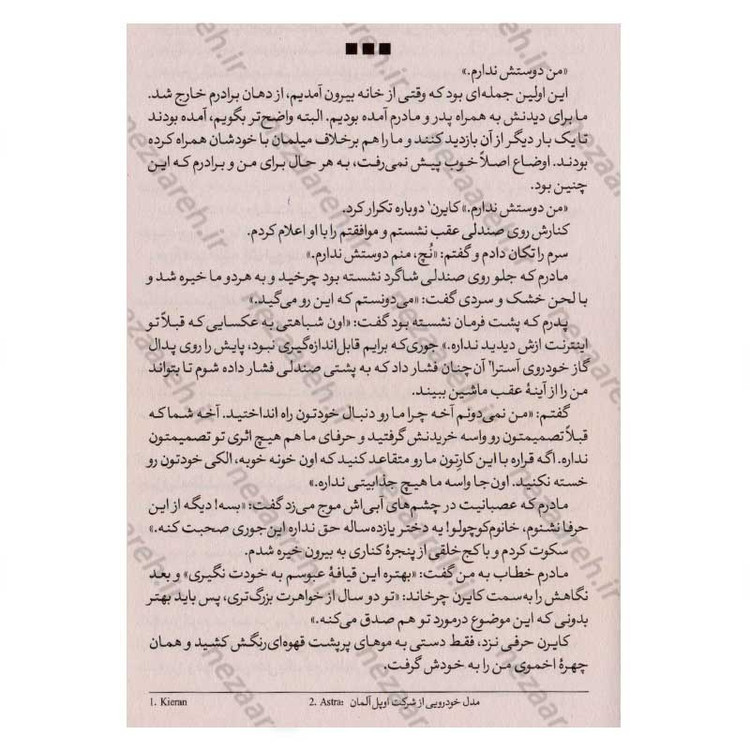 «من دوستش ندارم.»
این اولین جمله‌ای بود که وقتی از خانه بیرون آمدیم، از دهان برادرم خارج شد.
ما برای دیدنش به همراه پدر و مادرم آمده بودیم. البته واضح‌تر بگویم، آمده بودند
تا یک بار دیگر از آن بازدید کنند و ما را هم برخلاف میلمان با خودشان همراه کرده
بودند. اوضاع اصلاً خوب پیش نمی‌رفت، به هر حال برای من و برادرم که این
چنین بود.
«من دوستش ندارم.» کایرن۱ دوباره تکرار کرد.
کنارش روی صندلی عقب نشستم و موافقتم را با او اعلام کردم.
سرم را تکان دادم و گفتم: «نُچ، منم دوستش ندارم.»
مادرم که جلو روی صندلی شاگرد نشسته بود چرخید و به هردو ما خیره شد و
با لحن خشک و سردی گفت: «می‌دونستم که این رو می‌گید.»
پدرم که پشت فرمان نشسته بود گفت: «اون شباهتی به عکسایی که قبلاً تو
اینترنت ازش دیدید نداره.» جوری‌که برایم قابل‌اندازه‌گیری نبود، پایش را روی پدال
گاز خودروی آسترا۲ آن‌چنان فشار داد که به پشتی صندلی فشار داده شوم تا بتواند
من را از آینهٔ عقب ماشین ببیند.
گفتم: «من نمی‌دونم آخه چرا ما رو دنبال خودتون راه انداختید. آخه شما که
قبلاً تصمیمتون رو واسه خریدنش گرفتید و حرفای ما هم هیچ اثری تو تصمیمتون
نداره. اگه قراره با این کارتون ما رو متقاعد کنید که اون خونه خوبه، الکی خودتون رو
خسته نکنید. اون‌جا واسه ما هیچ جذابیتی نداره.»
مادرم که عصبانیت در چشم‌های آبی‌اش موج می‌زد گفت: «بسه! دیگه از این
حرفا نشنوم، خانوم‌کوچولو! یه دختر یازده‌ساله حق نداره این‌جوری صحبت کنه.»
سکوت کردم و با کج‌خلقی از پنجرهٔ کناری به بیرون خیره شدم.
مادرم خطاب به من گفت: «بهتره این قیافهٔ عبوسم به خودت نگیری» و بعد
نگاهش را به‌سمت کایرن چرخاند: «تو دو سال از خواهرت بزرگ‌تری، پس باید بهتر
بدونی که این موضوع درمورد تو هم صدق می‌کنه.»
کایرن حرفی نزد، فقط دستی به موهای پرپشت قهوه‌ای‌رنگش کشید و همان
چهرهٔ اخموی من را به خودش گرفت.
1. Kieran
2. Astra: مدل خودرویی از شرکت اوپل آلمان
nezaareh.ir